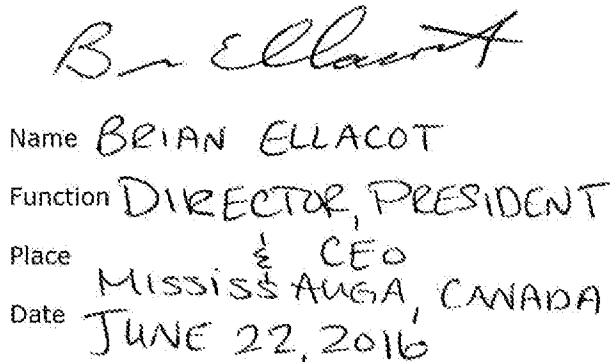 Brian Ellacott
Name BRIAN ELLACOT
Function DIRECTOR, PRESIDENT
& CEO
Place
MISSISSAUGA, CANADA
Date JUNE 22, 2016